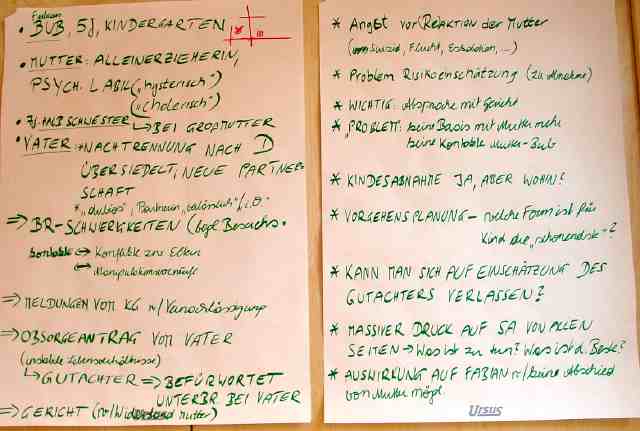 Fabian
• BUB, 5J, KINDERGARTEN
• MUTTER: ALLEINERZIEHERIN,
PSYCH. LABIL („hysterisch")
(„cholerisch")
• 7J. HALBSCHWESTER
↳ BEI GROßMUTTER
• VATER: NACH TRENNUNG NACH D
ÜBERSIEDELT, NEUE PARTNER-
SCHAFT
Partnerin / i.O.
⇒ BR-SCHWIERIGKEITEN (bzgl. Besuchs-
kontakte ↔ Konflikte zw. Eltern
↔ Manipulationsvorwürfe
⇒ MELDUNGEN VOM KG w/Vernachlässigung
⇒ OBSORGEANTRAG VOM VATER
(instabile Lebensverhältnisse)
↳ GUTACHTER ⇒ BEFÜRWORTET
UNTERBR. BEI VATER
⇒ GERICHT (w/Widerstand Mutter)
* Angst vor (REAKTION der Mutter
Suizid, Flucht, Eskalation, ...)
* Problem Risikoeinschätzung (zu Abnahme)
* WICHTIG: Absprache mit Gericht
* „PROBLEM: keine Basis mit Mutter mehr
keine Kontakte Mutter-Bub
* KINDESABNAHME JA, ABER WOHIN?
* VORGEHENSPLANUNG – welche Form ist für
Kind die „schonendste"?
* KANN MAN SICH AUF EINSCHÄTZUNG DES
GUTACHTERS VERLASSEN?
* MASSIVER DRUCK AUF SA VON ALLEN
SEITEN → Was ist zu tun? Was ist d. Beste?
* AUSWIRKUNG AUF FABIAN w/keine Abschied
von Mutter mögl.
Ursus